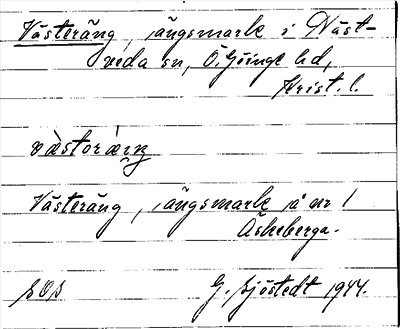 Västeräng, ängsmark i Näst-
veda sn, Ö. Göinge hd,
Krist. l.
västoräng
Västeräng, ängsmark å nr 1
Äskeberga.
G. Sjöstedt 1944.